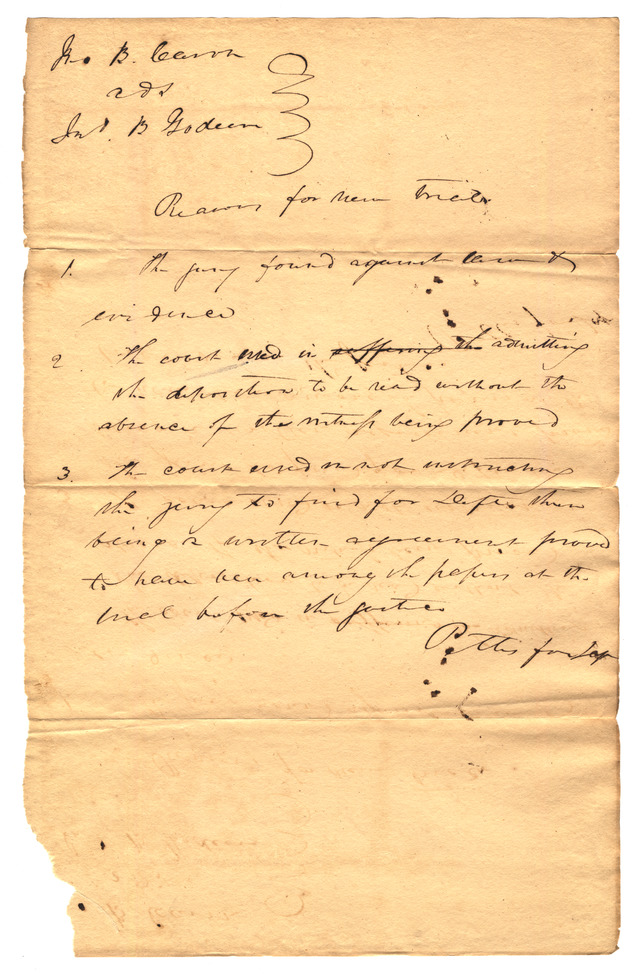 Jno B. Caron
ads
Jno. B Godeen
Reasons for new trial.
1. the jury found against law &
evidence
2. the court erred in suffering the admitting
the deposition to be read without the
absence of the witness being proved
3. the court erred in not instructing
the jury to find for Deft. there
being a written agreement proved
to have been among the papers at the
trial before the justice
Pettis for Def